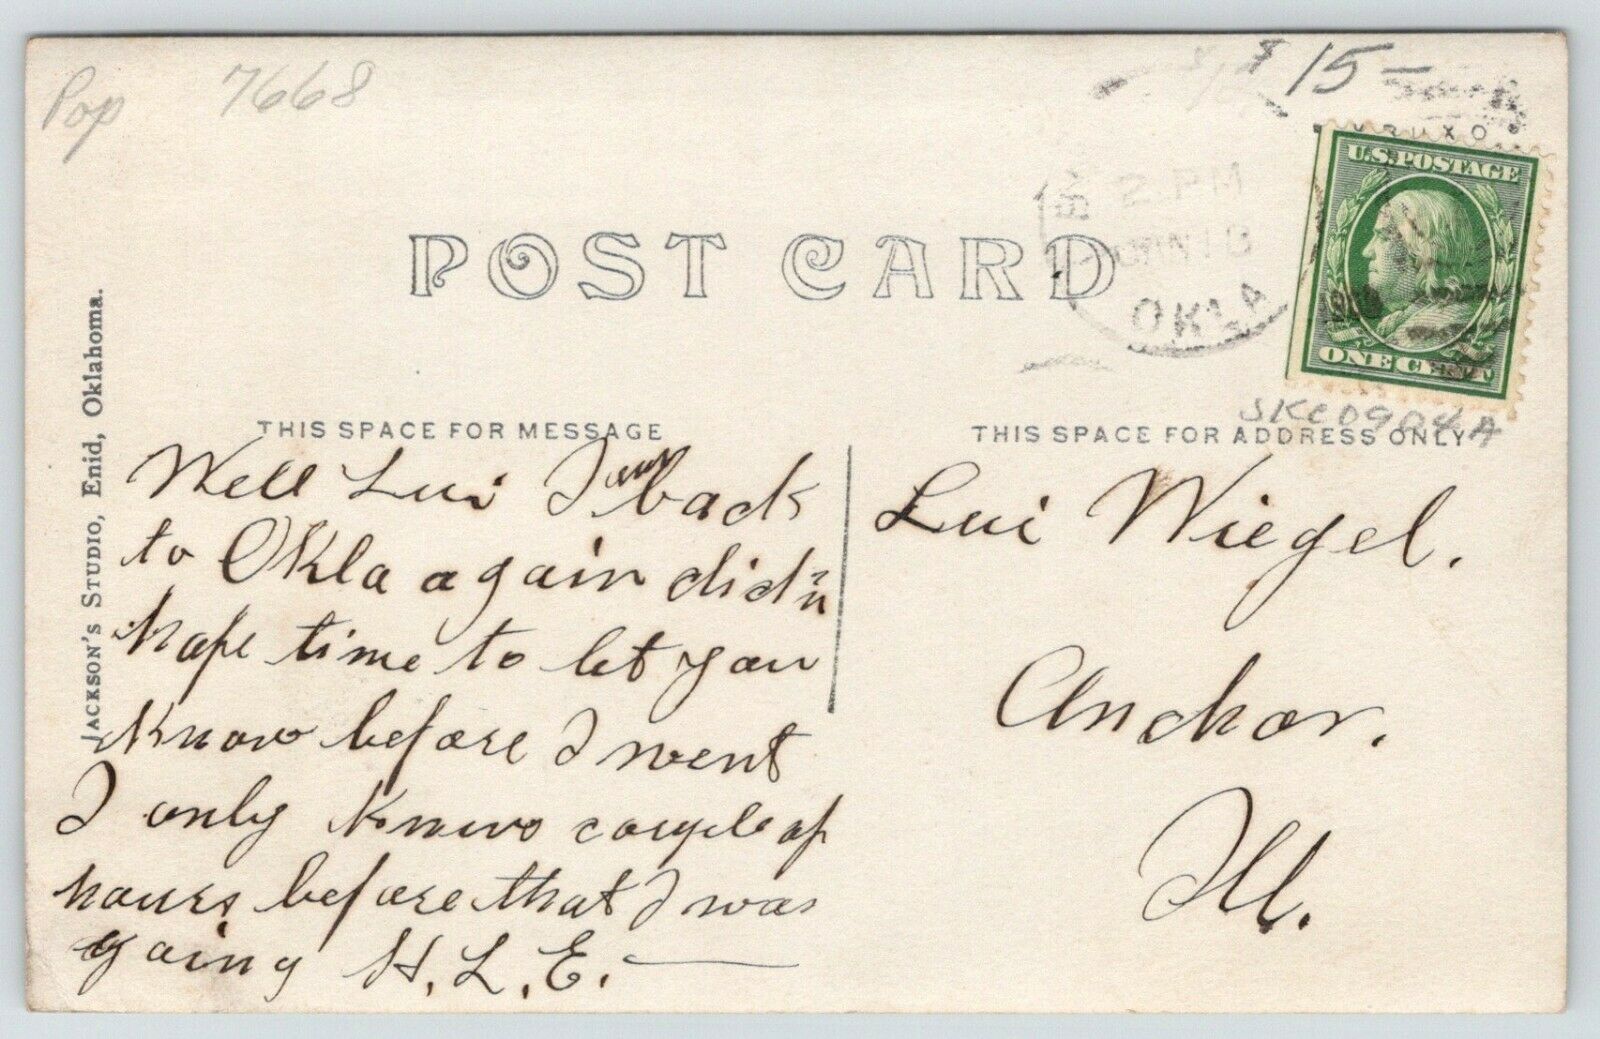 Pop 7668
$15-
2 PM
OKLA
1909
U.S. POSTAGE
ONE CENT
SKC0904A
POST CARD
JACKSON'S STUDIO, Enid, Oklahoma.
THIS SPACE FOR MESSAGE
THIS SPACE FOR ADDRESS ONLY
Well Lui I am back
to Okla again did'n
hafe time to let you
know before I went
I only knowo couple of
hours before that I was
going H.L.E.
Lui Wiegel.
Anchor.
Ill.